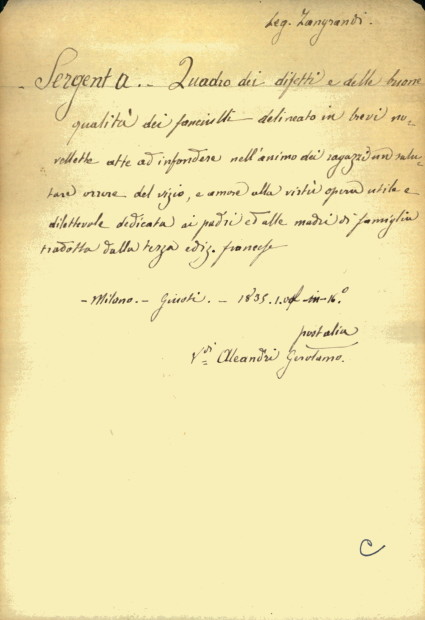 Leg. Zangrandi.
Sergent A. - Quadro dei difetti e delle buone
qualità dei fanciulli delineato in brevi no=
vellette atte ad infondere nell'animo dei ragazzi un salu=
tare orrore del vizio, e amore alla virtù opera utile e
dilettevole dedicata ai padri ed alle madri di famiglia
tradotta dalla terza ediz. francese
- Milano. - Giusti. - 1835. 1. in-16.º
postalia
V.di Aleandri Girolamo.
C